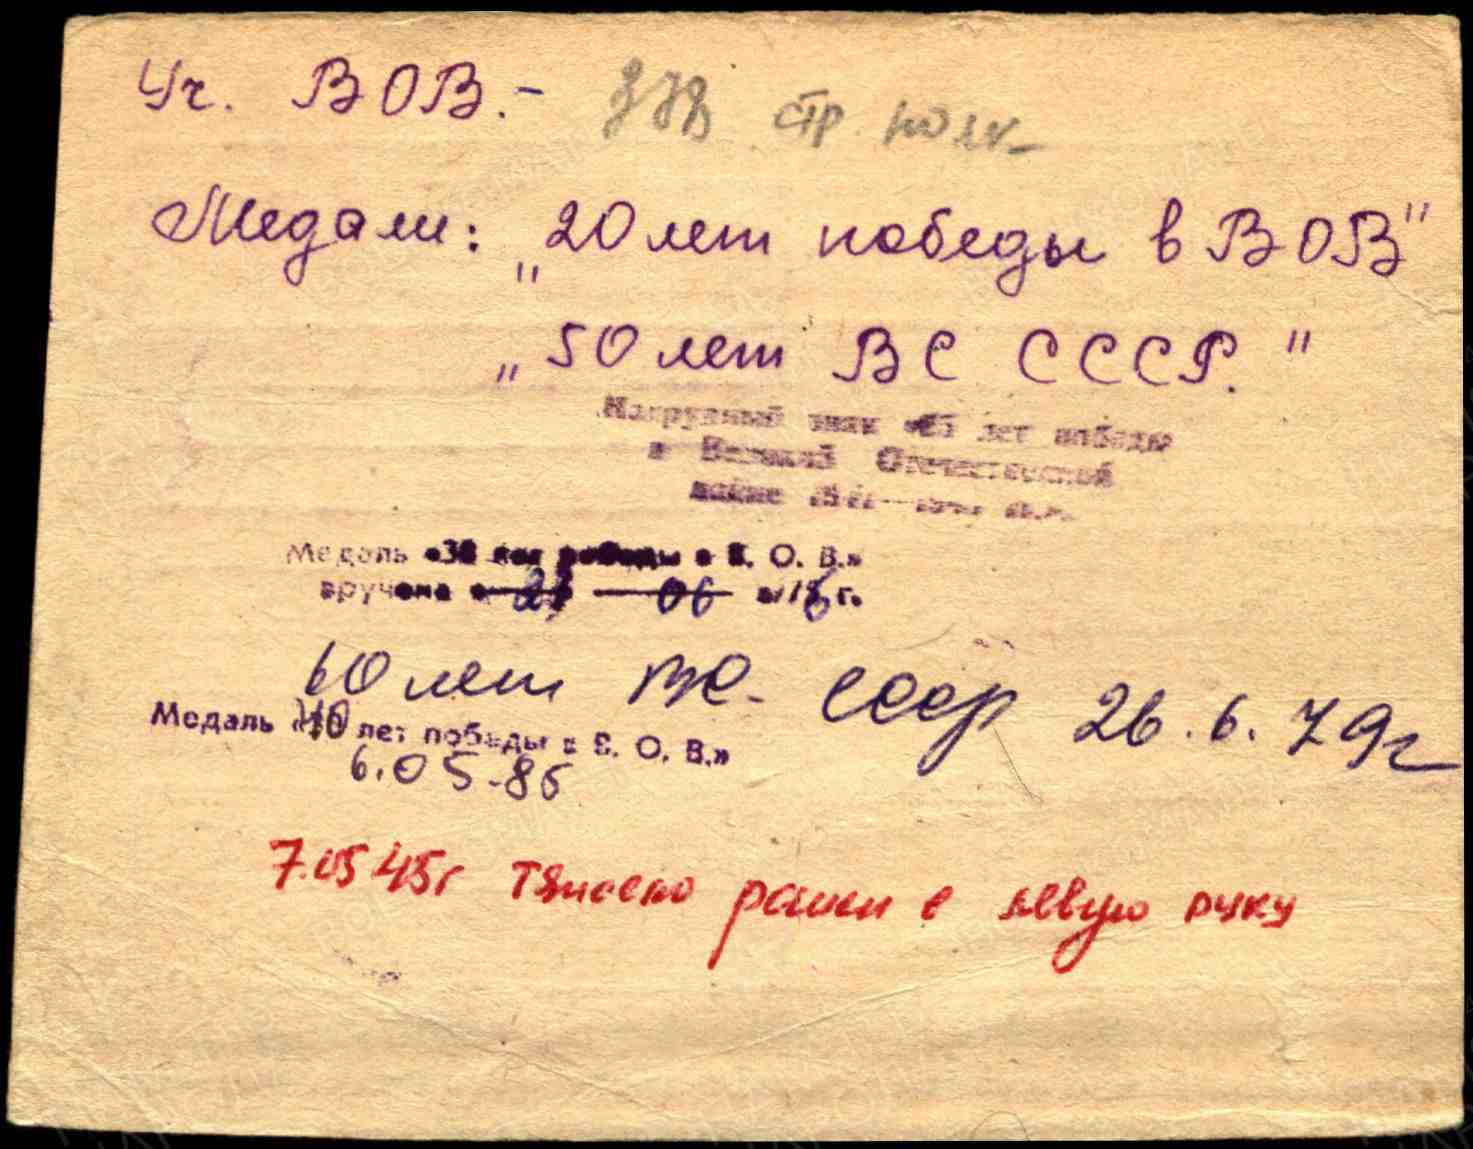 Уч. ВОВ. - стр. полк
Медали: „20 лет победы в ВОВ"
„50 лет ВС СССР."
Нагрудный знак «25 лет победы
в Великой Отечественной
войне 1941—1945 гг.»
Медаль «30 лет победы в В. О. В.»
вручена 06 г.
60 лет ВС. СССР 26.6.79г
Медаль «40 лет победы в В. О. В.»
6.05-85
7.05 45г тяжело ранен в левую руку